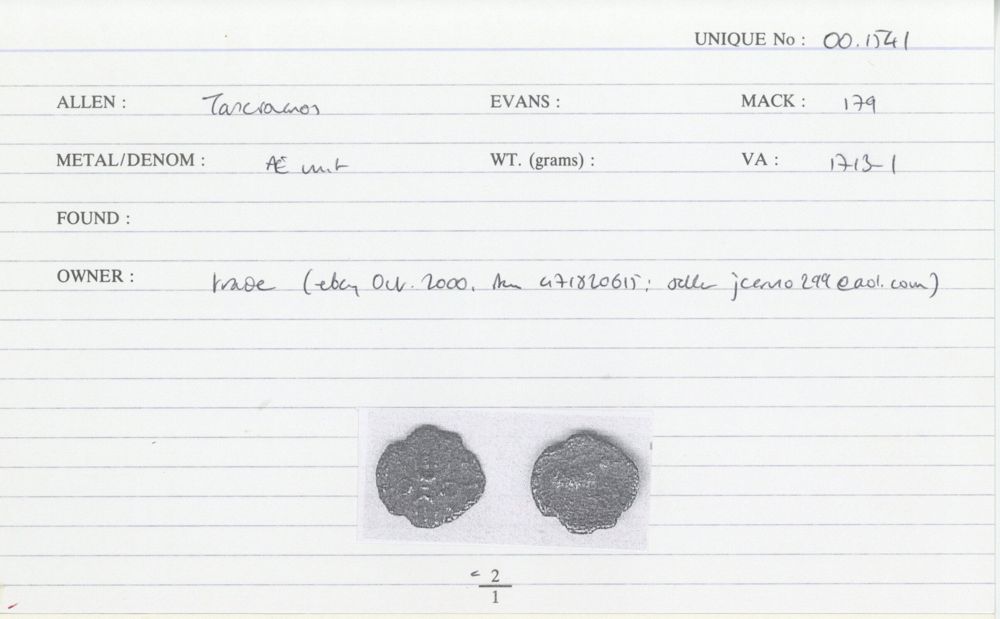 UNIQUE No : 00.1541
ALLEN : Tasciovanos EVANS : MACK : 179
METAL/DENOM : Æ unit WT. (grams) : VA : 1713-1
FOUND :
OWNER : trade (ebay Oct. 2000, item 471820615; seller jcerno299@aol.com)
2
1